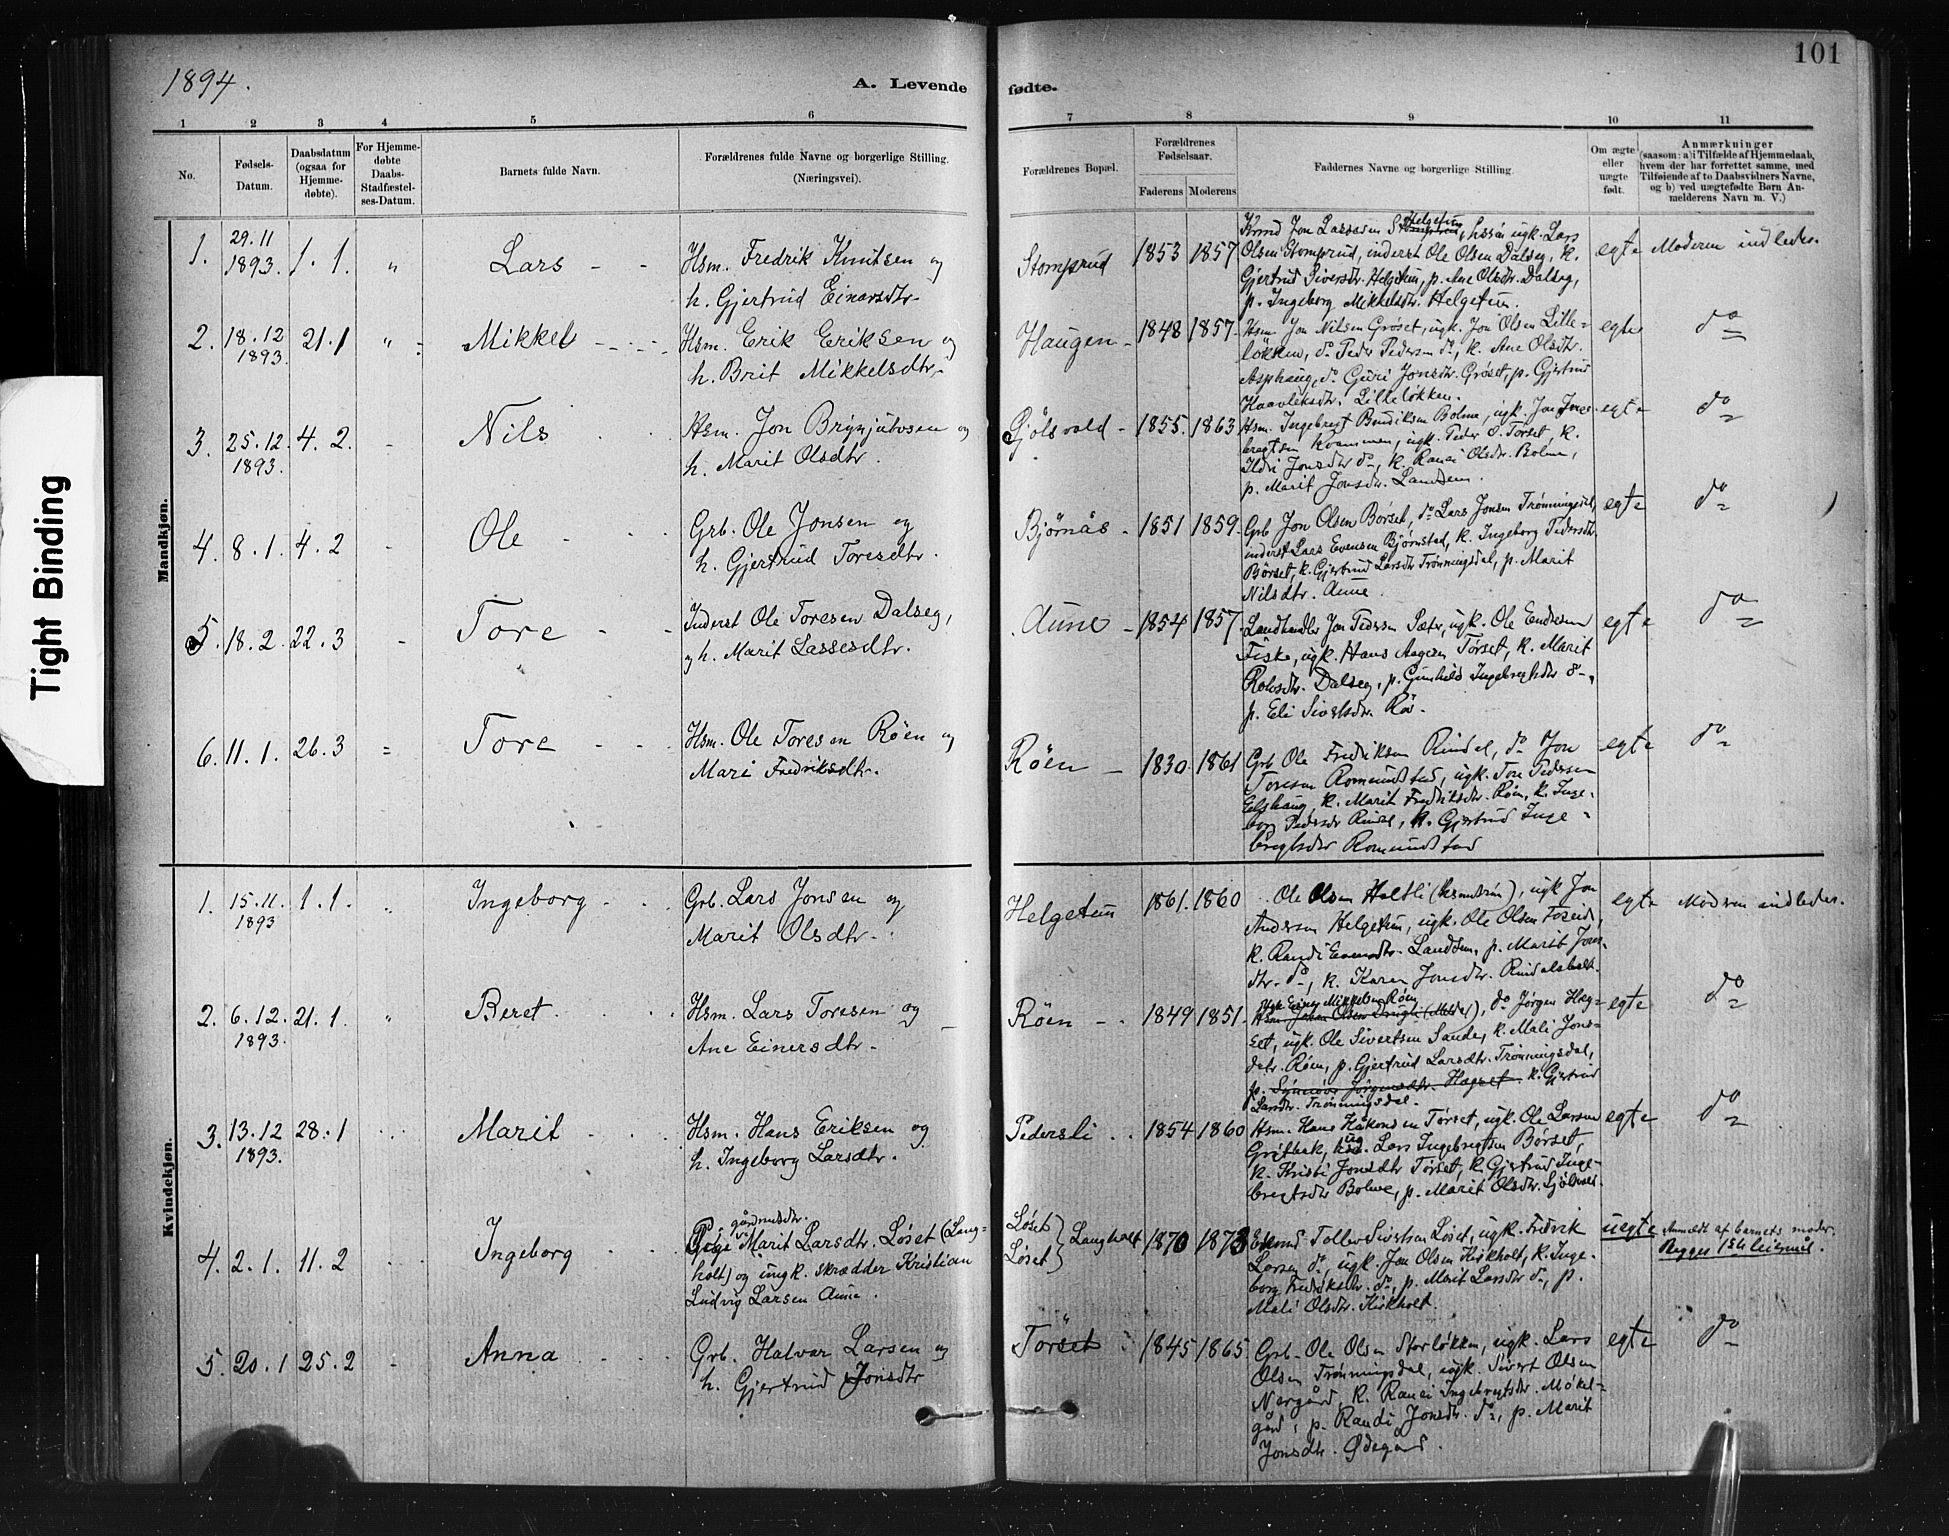 101
1894.
A. Levende
fødte.
1 2 3 4 5 6 7 8 9 10 11
No.
Fødsels-
Datum.
Daabsdatum
(ogsaa for
Hjemme-
døbte).
For Hjemme-
døbte
Daabs-
Stadfæstel-
ses-Datum.
Barnets fulde Navn.
Forældrenes fulde Navne og borgerlige Stilling.
(Næringsvei).
Forældrenes Bopæl.
Forældrenes
Fødselsaar.
Faderens Moderens
Faddernes Navne og borgerlige Stilling.
Om ægte
eller
uægte
født.
Anmærkninger
(saasom: a) i Tilfælde af Hjemmedaab,
hvem der har forrettet samme, med
Tilføiende af to Daabsvidners Navne,
og b) ved uægtefødte Børn An-
melderens Navn m. V.)
Tight Binding
Mandkjøn.
1. 29.11 1893. 1.1. " Lars
Hsm. Fredrik Knutsen og
h. Gjertrud Einarsdtr.
Stomprud 1853 1857
Jon Lassesen Helgetun, ugk. Lars
Olsen Stomprud, inderst Ole Olsen Dalseg, k.
Gjertrud Siversdtr. Helgetun, p. Ane Olsdtr. Dalseg,
p. Ingeborg Mikkelsdtr. Helgetun.
egte Moderen indledes.
2. 18.12 1893. 21.1 " Mikkel
Hsm. Erik Eriksen og
h. Brit Mikkelsdtr.
Haugen 1848 1857
Hsm. Jon Nilsen Grøset, ugk. Jon Olsen Lille-
løkken, do Peder Pedersen do, k. Ane Olsdtr.
Asphaug, do Guri Jonsdtr. Grøset, p. Gjertrud
Haavleksdtr. Lilleløkken.
egte do
3. 25.12 1893. 4.2. Nils
Hsm. Jon Brynjulvsen og
h. Marit Olsdtr.
Gjølsvold 1855. 1863
Hsm. Ingebregt Bendiksen Bolme, ugk. Jon Inge-
bregtsen Kvammen, ugk. Peder O. Tørset, k.
Ildri Jonsdtr do, k. Ranei Olsdtr. Bolme,
p. Marit Jonsdtr. Landsem.
egte do
4. 8.1. 4.2 Ole
Grb. Ole Jonsen og
h. Gjertrud Toresdtr.
Bjørnås 1851 1859
Grb Jon Olsen Børset, do Lars Jonsen Trønningsdal,
inderst Lars Evensen Bjørnstad, k. Ingeborg Pedersdtr
Børset, k. Gjertrud Larsdtr Trønningsdal, p. Marit
Nilsdtr. Aune.
egte do
5. 18.2. 22.3 Tore
Inderst Ole Toresen Dalseg,
og h. Marit Lassesdtr.
Aune 1854 1857
Landhandler Jon Pedersen Sæter, ugk. Ole Endresen
Fiske, ugk. Hans Aagesen Tørset, k. Marit
Dalseg, p. Gunhild Ingebregtsdtr
p. Eli Sivertsdtr. Røv.
egte do
6. 11.1. 26.3 Tore
Hsm. Ole Toresen Røen og
Mari Fredriksdtr.
Røen 1830 1861
Grb Ole Fredriksen Rindal, do Jon
Toresen Romundstad, ugk. Tore Pedersen
Elshaug, k. Marit Fredriksdtr. Røen, k. Inge-
borg Pedersdtr Rindal, k. Gjertrud Inge-
bregtsdtr Romundstad
egte do
Kvindekjøn.
1. 15.11. 1893 1.1. Ingeborg
Grb. Lars Jonsen og
Marit Olsdtr.
Helgetun 1861. 1860
Ole Olsen Holtli, ugk Jon
Andersen Helgetun, ugk. Ole Olsen Foseide,
k. Randi Evensdtr. Landsem, p. Marit Jons-
dtr. do, k. Karen Jonsdtr.
egte Moderen indledes.
2. 6.12. 1893. 21.1. " Beret
Hsm. Lars Toresen og
Ane Einersdtr
Røen 1849 1851.
Einar Mikkelsen Røen
Hsm Johan Olsen Drugli (Meldal), do Jørgen Hæg-
set, ugk. Ole Sivertsen Sande, k. Mali Jons-
datr. Røen, p. Gjertrud Larsdtr. Trønningsdal,
p. Synnøve Jørgensdtr. Hægset k. Gjertrud
Larsdtr. Trønningsdal.
egte do
3. 13.12 1893. 28.1 Marit
Hsm. Hans Eriksen og
h. Ingeborg Larsdtr.
Pedersli 1854 1860
Hsm. Hans Håkonsen Tørset, ugk. Ole Larsen
Grøtbæk, Lars Ingebregtsen Børset,
k. Kristi Jonsdtr Tørset, k. Gjertrud Inge-
bregtsdtr Bolme, p. Marit Olsdtr.
egte do
4. 2.1. 11.2 Ingeborg
gårdmdtr.
Pige Marit Larsdtr. Løset (Lang-
holt) og ungk. skrædder Kristian
Ludvig Larsen Aune.
Løset } Langholt
Løset
1870 1873
Toller Sivertsen Løset, ugk. Fredrik
Larsen do, ugk. Jon Olsen Kirkholt, k. Inge-
borg Fredriksdtr. do, p. Marit Larsdtr do, p.
Mali Olsdtr. Kirkholt.
uegte Anmeldt af barnets moder.
Begges 1ste leiermål.
5. 20.1 25.2 Anna
Grb. Halvar Larsen og
h. Gjertrud Jonsdtr
Tørset 1845 1865
Grb. Ole Olsen Storløkken, ugk. Lars
Olsen Trønningsdal, ugk. Sivert Olsen
Nergård, k. Ranei Ingebregtsdtr. Møkel-
gård, p. Randi Jonsdtr. do, p. Marit
Jonsdtr. Ødegård.
egte do